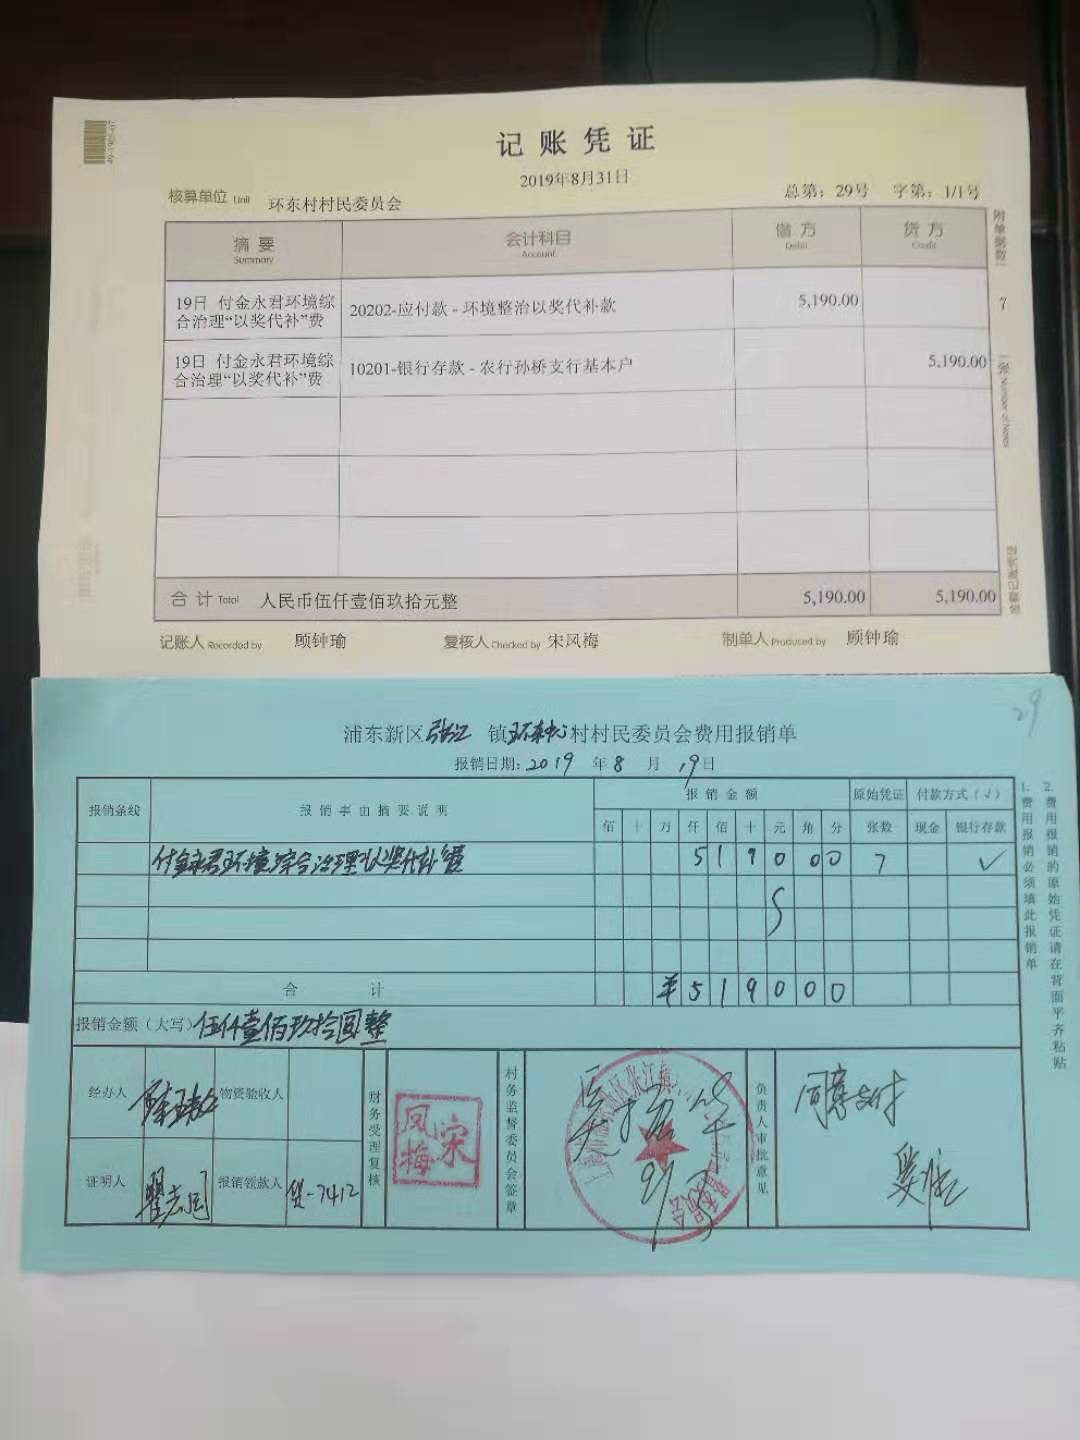 记账凭证
2019年8月31日
核算单位 Unit 环东村村民委员会
总第：29号 字第：1/1号
摘要 会计科目 借方 贷方
Summary Account Debit Credit
19日 付金永君环境综合治理“以奖代补”费 20202-应付款 - 环境整治以奖代补款 5,190.00
19日 付金永君环境综合治理“以奖代补”费 10201-银行存款 - 农行孙桥支行基本户 5,190.00
合计 Total 人民币伍仟壹佰玖拾元整 5,190.00 5,190.00
记账人 Recorded by 顾钟瑜 复核人 Checked by 宋凤梅 制单人 Produced by 顾钟瑜
附单据数 7 张
29
浦东新区张江镇环东中心村村民委员会费用报销单
报销日期：2019年8月19日
报销条线 报销事由摘要说明 报销金额 原始凭证 付款方式（√）
佰 十 万 仟 佰 十 元 角 分 张数 现金 银行存款
付金永君环境综合治理以奖代补费 5 1 9 0 0 0 7 √
合计 ¥ 5 1 9 0 0 0
报销金额（大写）伍仟壹佰玖拾圆整
经办人 物资验收人
证明人 报销领款人
财务受理复核
宋凤梅
村务监督委员会签章
负责人审批意见
同意支付
1.费用报销必须填此报销单
2.费用报销的原始凭证请在背面平齐粘贴